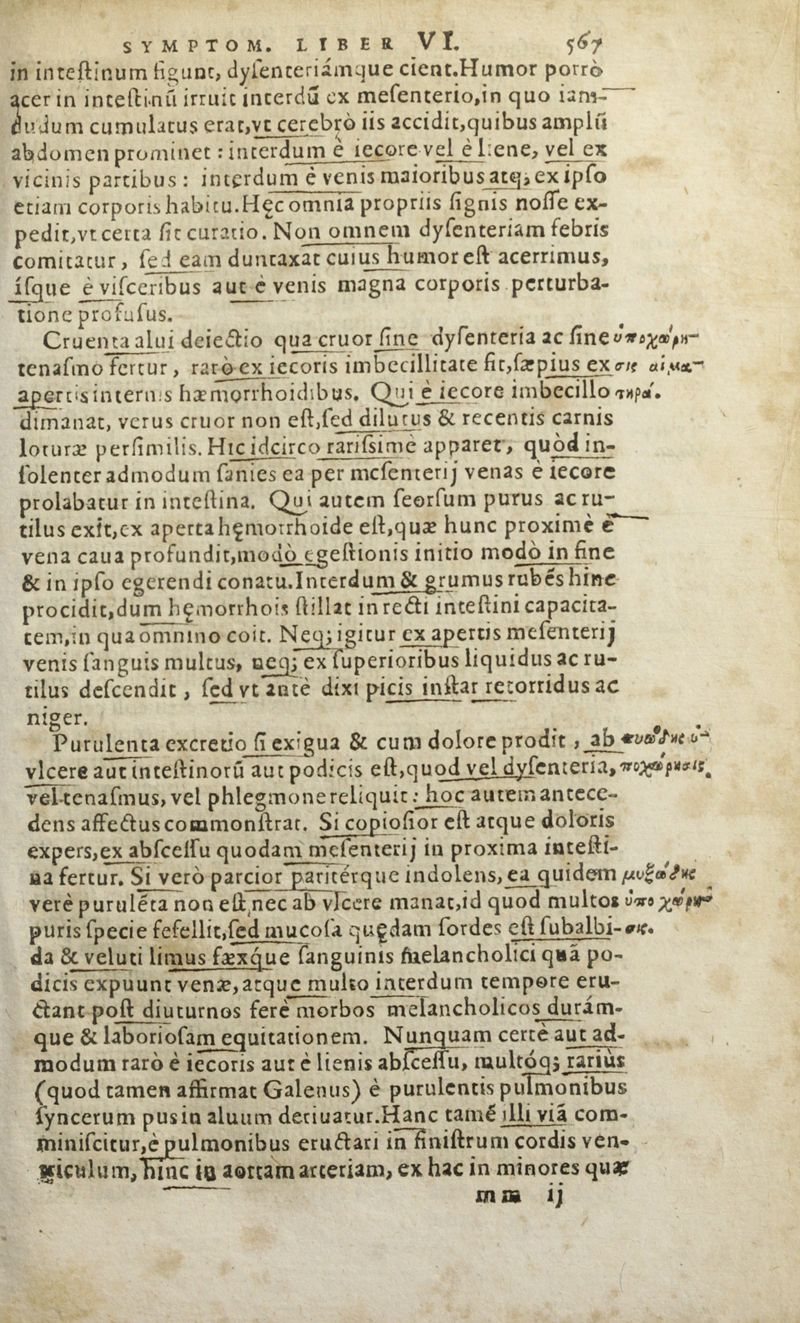 SYMPTOM. LIBER VI. 567
in inteſtinum figunt, dyſenteriámque cient.Humor porrò
acer in inteſtinū irruit interdū ex meſenterio,in quo iam-
dudum cumulatus erat,vt cerebrò iis accidit,quibus amplū
abdomen prominet : interdum è iecore vel è liene, vel ex
vicinis partibus : interdum è venis maioribus atq; ex ipſo
etiam corporis habitu.Hęc omnia propriis ſignis noſſe ex-
pedit,vt certa ſit curatio. Non omnem dyſenteriam febris
comitatur, ſed eam duntaxat cuius humor eſt acerrimus,
íſque è viſceribus aut è venis magna corporis perturba-
tione profuſus.
Cruenta alui deiectio qua cruor ſine dyſenteria ac ſine
tenaſmo fertur, rarò ex iecoris imbecillitate fit,ſæpius ex αἱμα-
apertis internis hæmorrhoidibus. Qui è iecore imbecillo τηρά.
dimanat, verus cruor non eſt,ſed dilutus & recentis carnis
loturæ perſimilis. Hic idcirco rariſsimè apparet, quòd in-
ſolenter admodum ſanies ea per meſenterij venas è iecore
prolabatur in inteſtina. Qui autem ſeorſum purus ac ru-
tilus exit,ex aperta hęmorrhoide eſt,quæ hunc proximè è
vena caua profundit,modò egeſtionis initio modò in fine
& in ipſo egerendi conatu.Interdum & grumus rubēs hinc
procidit,dum hęmorrhois ſtillat in recti inteſtini capacita-
tem,in qua omnino coit. Neq; igitur ex apertis meſenterij
venis ſanguis multus, neq; ex ſuperioribus liquidus ac ru-
tilus deſcendit, ſed vt antè dixi picis inſtar retorridus ac
niger.
Purulenta excretio ſi exigua & cum dolore prodit, ab πυώδης ὑ-
vlcere aut inteſtinorū aut podicis eſt,quod vel dyſenteria, ποχώρησις.
vel tenaſmus, vel phlegmone reliquit : hoc autem antece-
dens affectus commonſtrat. Si copioſior eſt atque doloris
expers,ex abſceſſu quodam meſenterij in proxima inteſti-
na fertur. Si verò parcior paritérque indolens, ea quidem μυξώδης
verè purulēta non eſt,nec ab vlcere manat,id quod multos ὑπο χώρη-
puris ſpecie fefellit,ſed mucoſa quędam ſordes eſt ſubalbi- σις.
da & veluti limus fæxque ſanguinis melancholici quā po-
dicis expuunt venæ,atque multo interdum tempore eru-
ctant poſt diuturnos ferè morbos melancholicos, durám-
que & laborioſam equitationem. Nunquam certè aut ad-
modum rarò è iecoris aut è lienis abſceſſu, multóq; rariùs
(quod tamen affirmat Galenus) è purulentis pulmonibus
ſyncerum pus in aluum deriuatur.Hanc tamē illi viā com-
miniſcitur,è pulmonibus eructari in ſiniſtrum cordis ven-
triculum, hinc in aortam arteriam, ex hac in minores quæ
mm ij